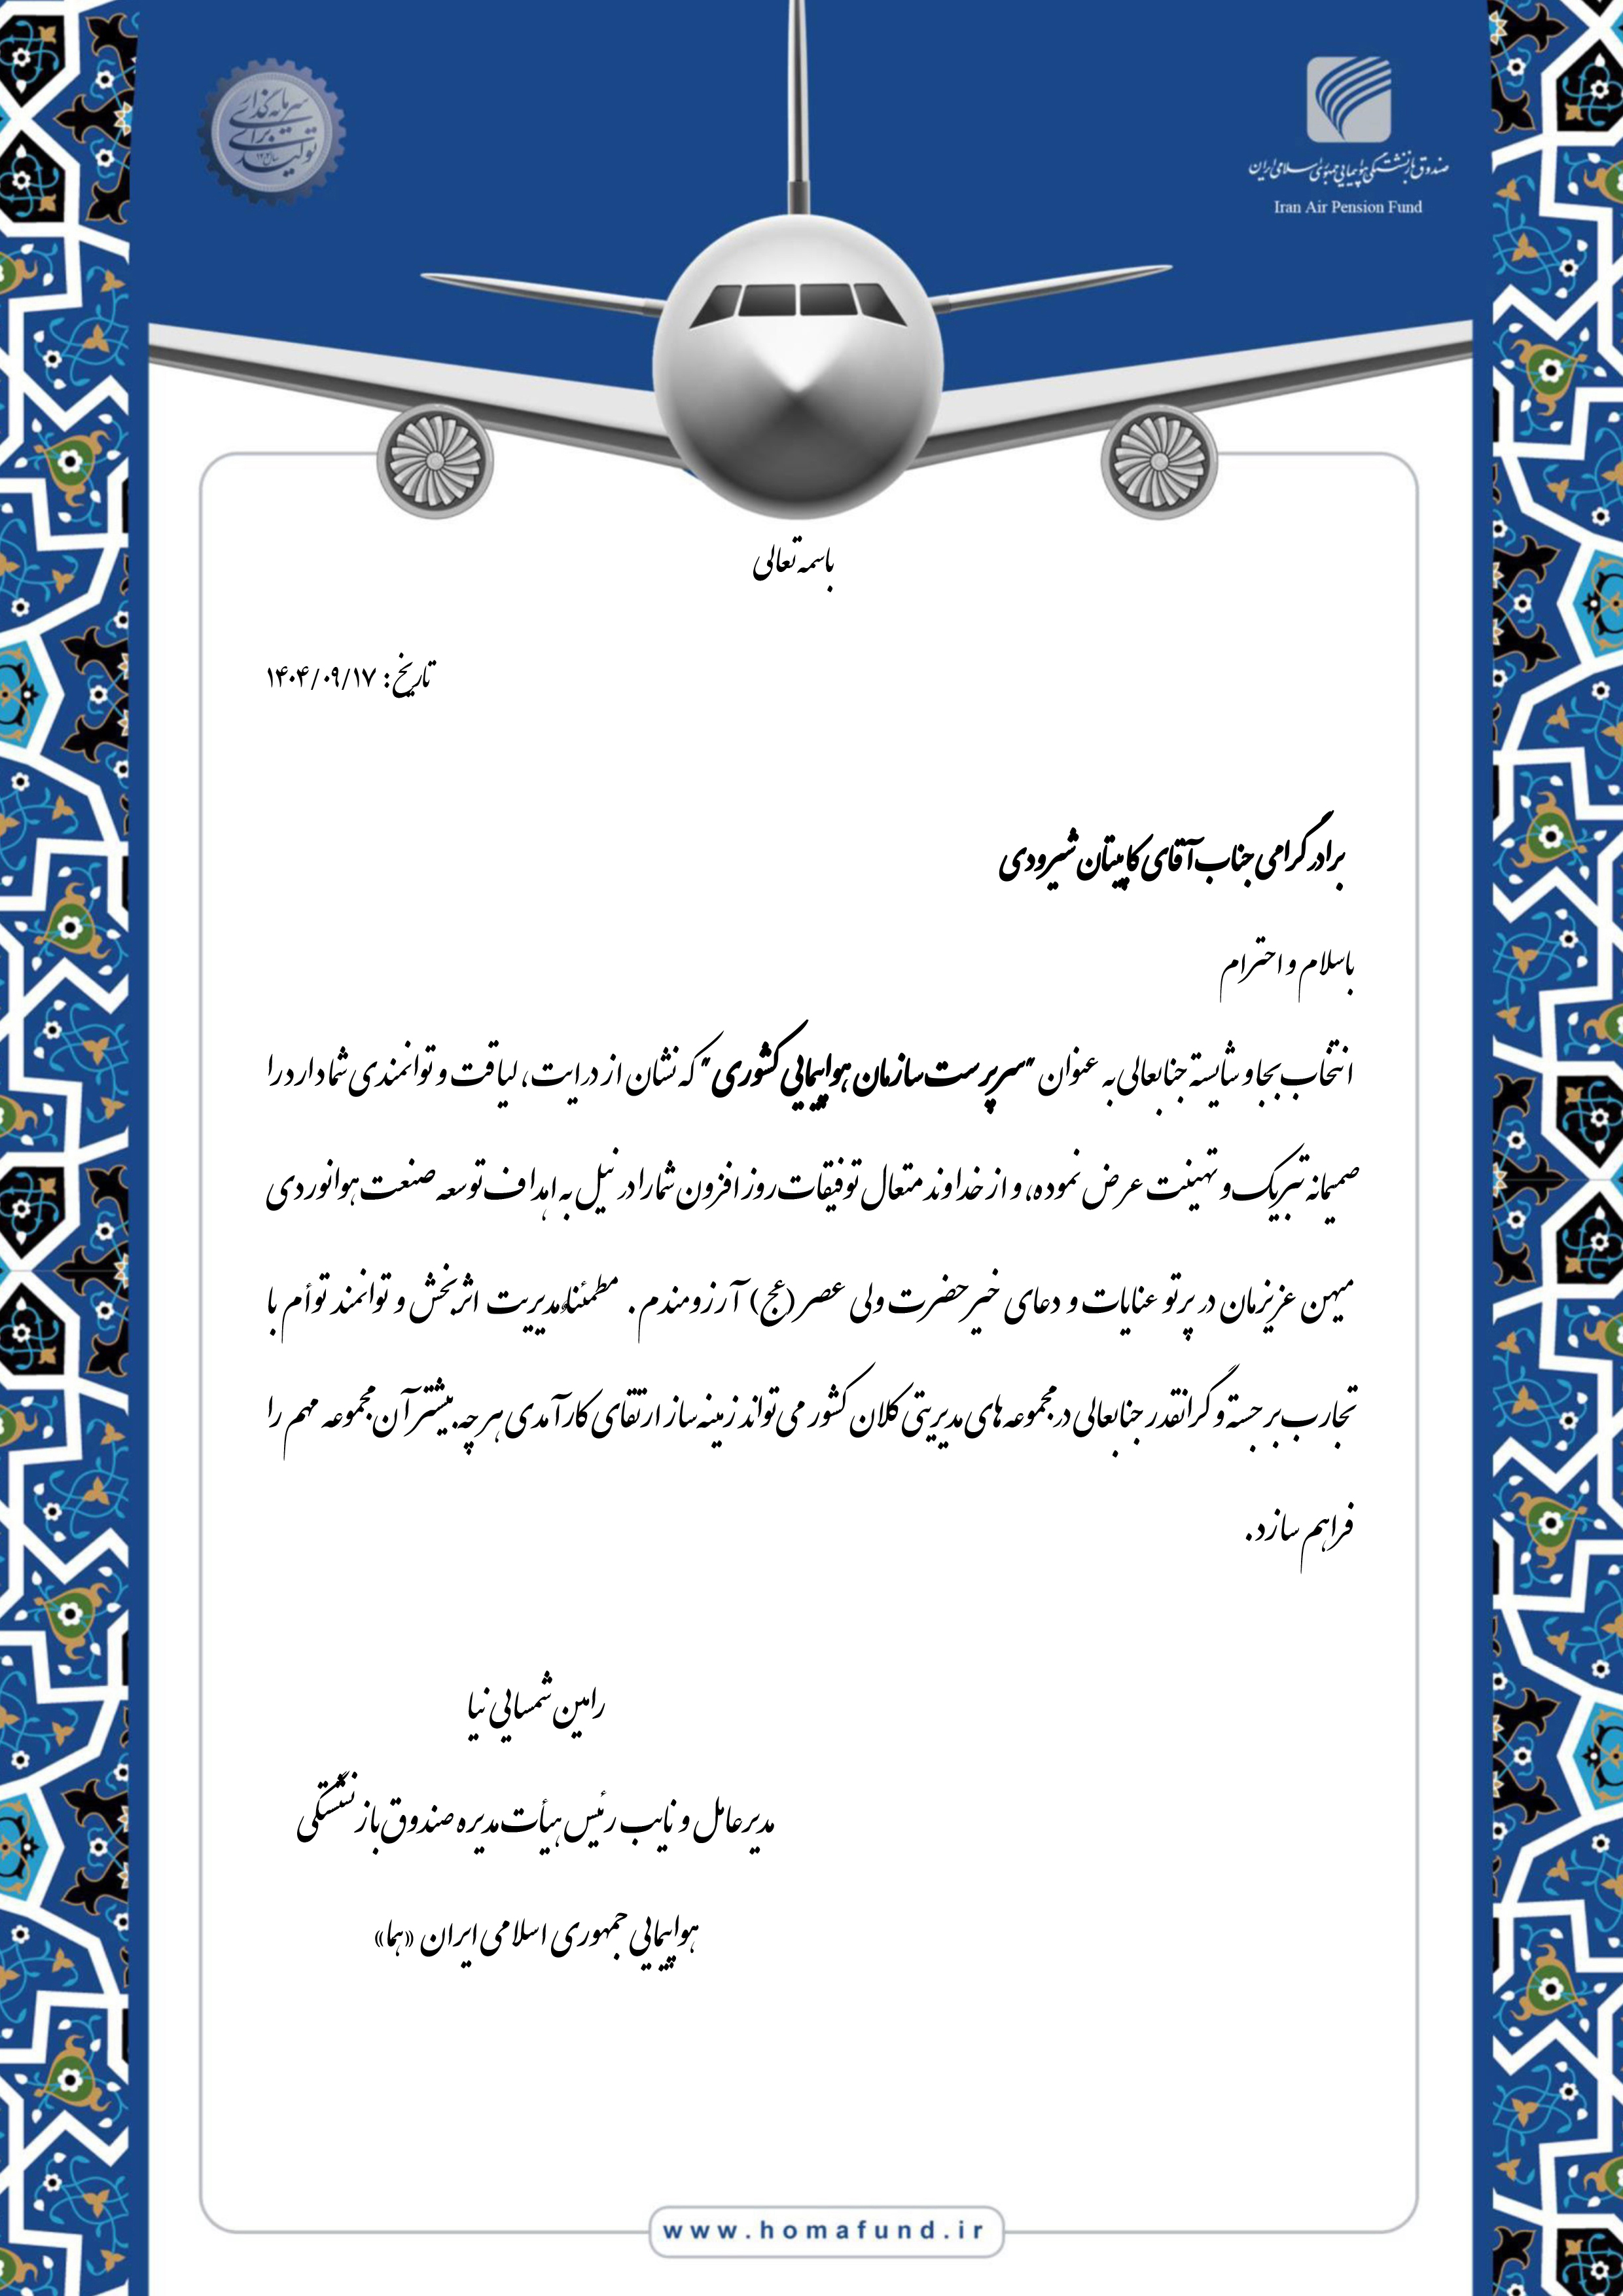 سرمایه‌گذاری
برای
تولید
صندوق بازنشستگی هواپیمایی جمهوری اسلامی ایران
Iran Air Pension Fund
باسمه تعالی
تاریخ: ۱۴۰۴/۰۹/۱۷
برادر گرامی جناب آقای کاپیتان شیرودی
باسلام و احترام
انتخاب بجا و شایسته جنابعالی به عنوان "سرپرست سازمان هواپیمایی کشوری" که نشان از درایت، لیاقت و توانمندی شما دارد را
صمیمانه تبریک و تهنیت عرض نموده، و از خداوند متعال توفیقات روز افزون شما را در نیل به اهداف توسعه صنعت هوانوردی
میهن عزیزمان در پرتو عنایات و دعای خیر حضرت ولی عصر (عج) آرزومندم. مطمئنا مدیریت اثربخش و توانمند توأم با
تجارب برجسته و گرانقدر جنابعالی در مجموعه های مدیریتی کلان کشور می تواند زمینه ساز ارتقای کارآمدی هر چه بیشتر آن مجموعه مهم را
فراهم سازد.
رامین شمسایی نیا
مدیرعامل و نایب رئیس هیأت مدیره صندوق بازنشستگی
هواپیمایی جمهوری اسلامی ایران «هما»
www.homafund.ir